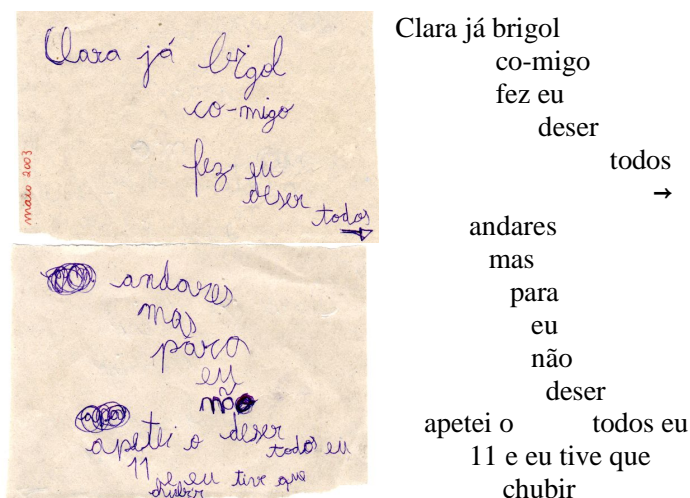 Clara já brigol
co-migo
fez eu
deser
todos
→
maio 2003
andares
mas
para
eu
não
deser
apetei o todos eu
11 e eu tive que
chubir
Clara já brigol
co-migo
fez eu
deser
todos
→
andares
mas
para
eu
não
deser
apetei o todos eu
11 e eu tive que
chubir